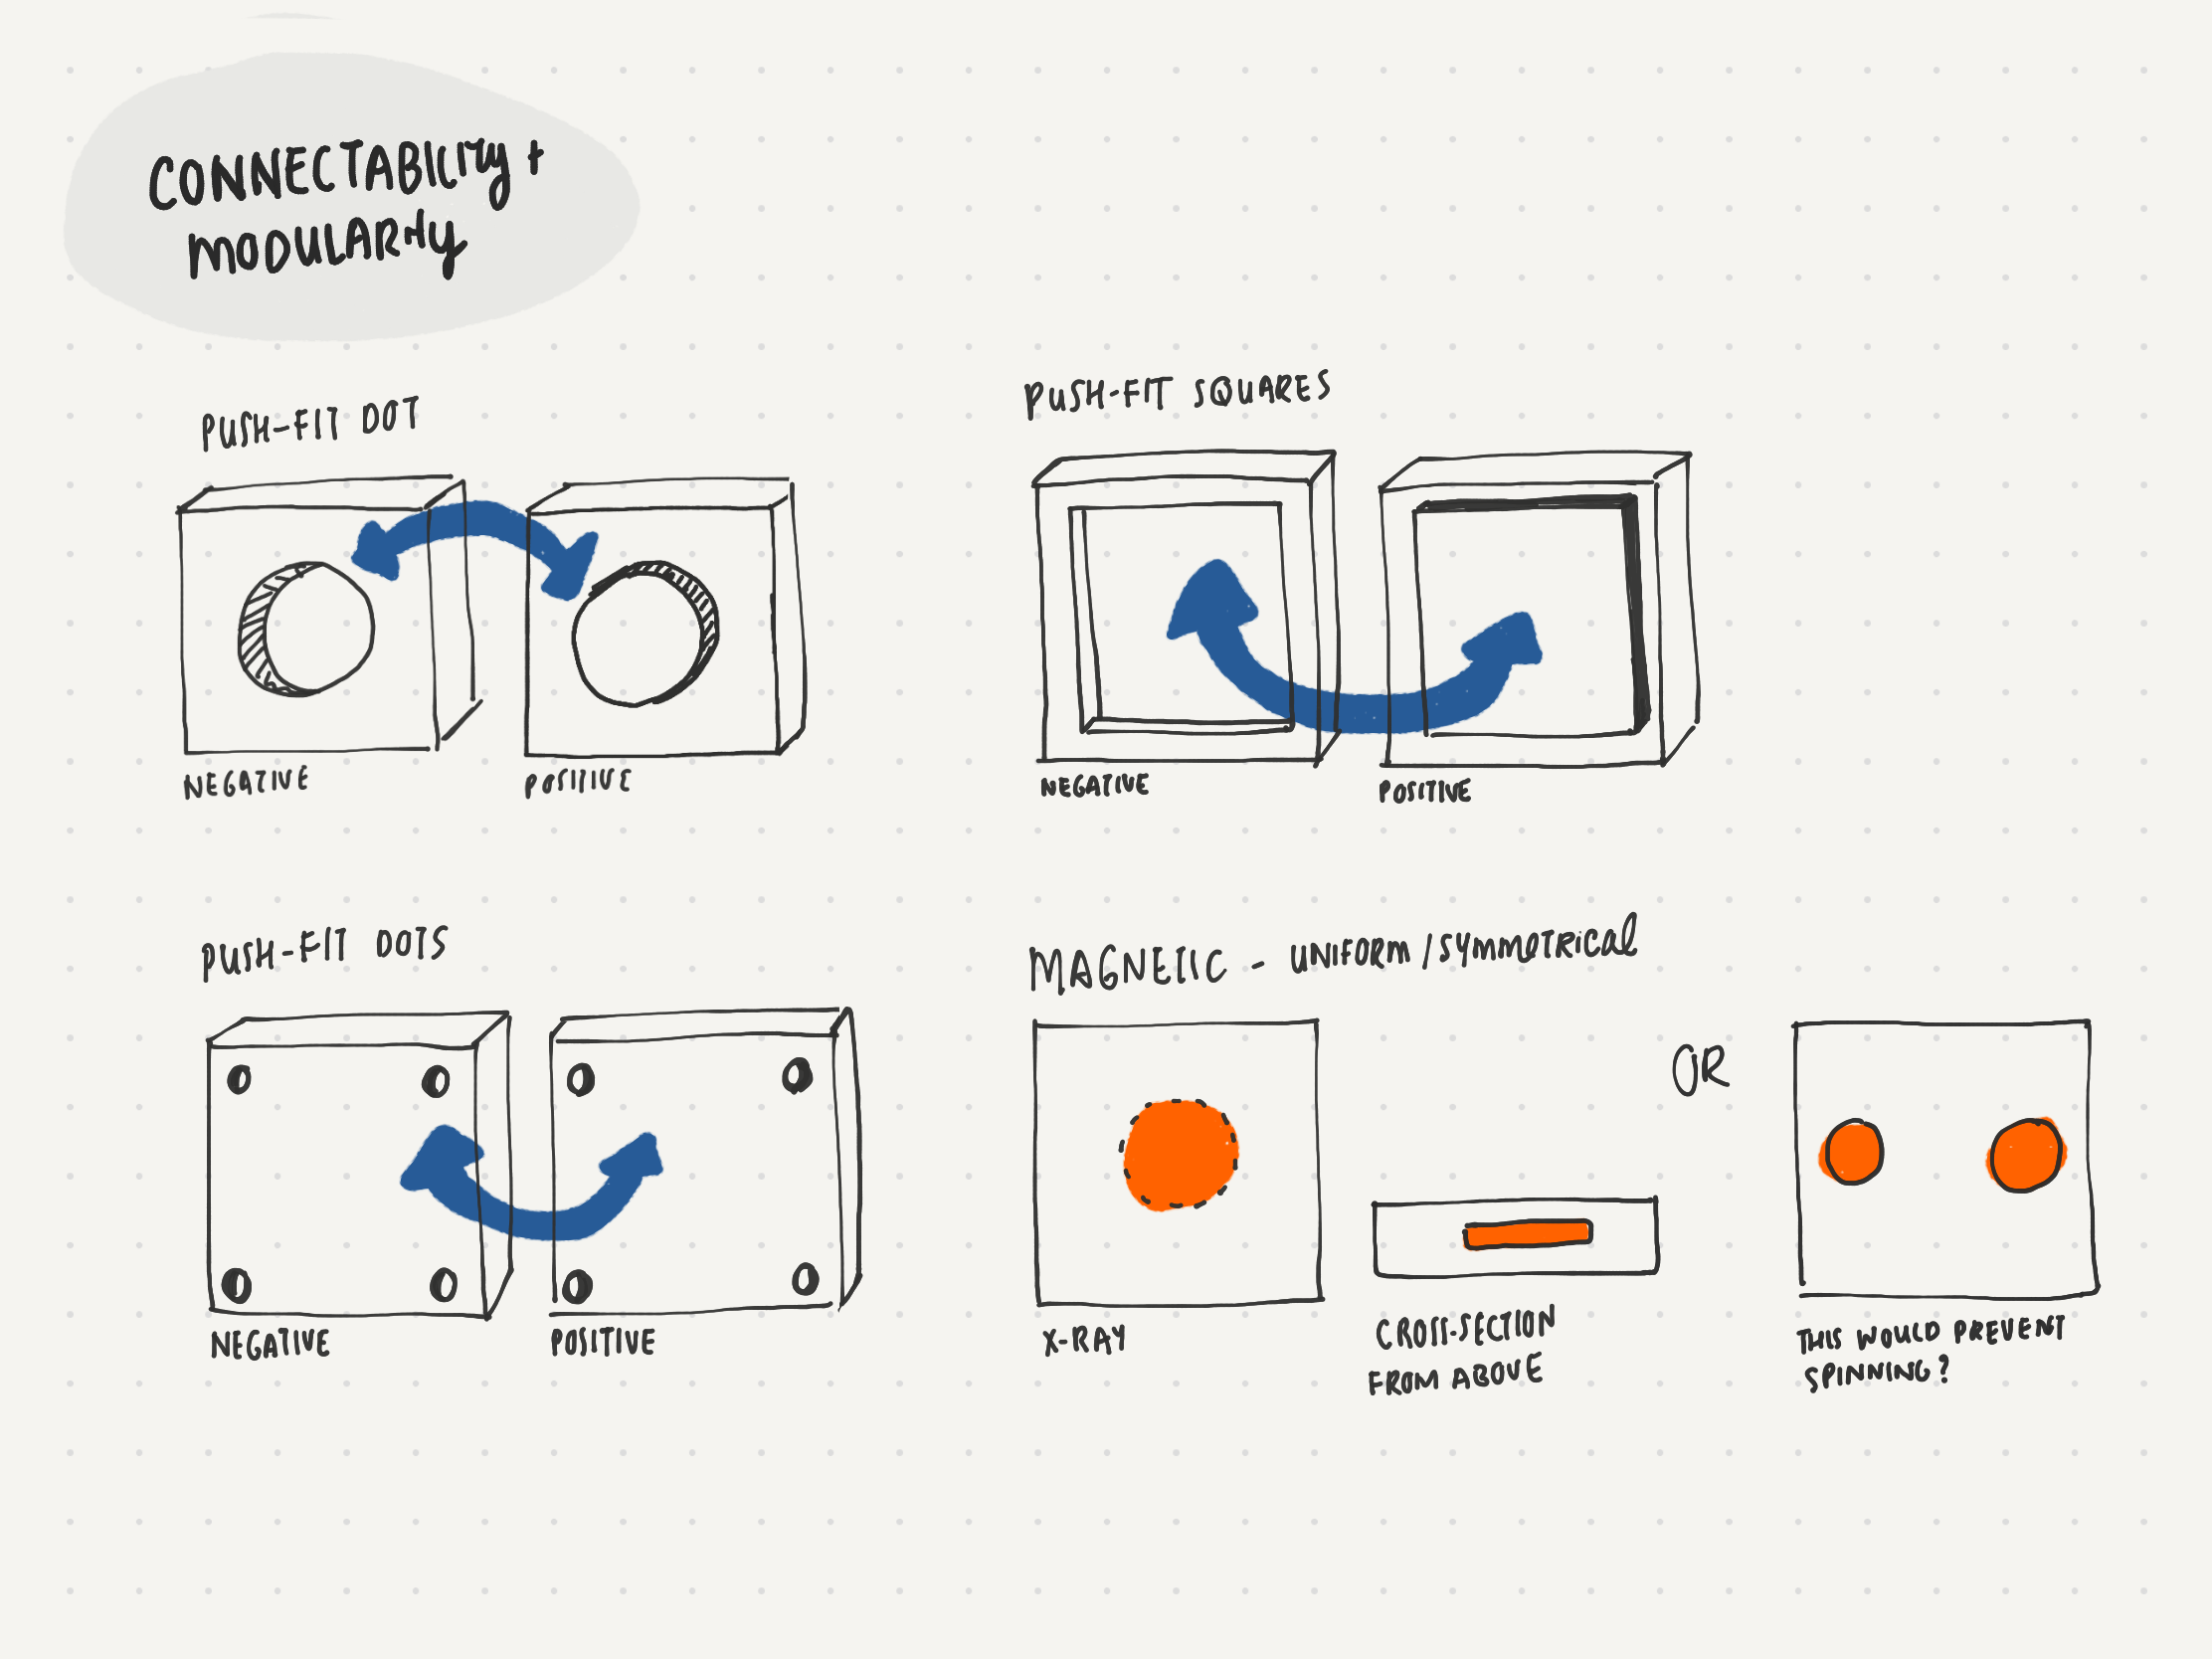 CONNECTABILITY +
MODULARITY
PUSH-FIT DOT
NEGATIVE
POSITIVE
PUSH-FIT SQUARES
NEGATIVE
POSITIVE
PUSH-FIT DOTS
NEGATIVE
POSITIVE
MAGNETIC - UNIFORM/SYMMETRICAL
X-RAY
CROSS-SECTION
FROM ABOVE
OR
THIS WOULD PREVENT
SPINNING?